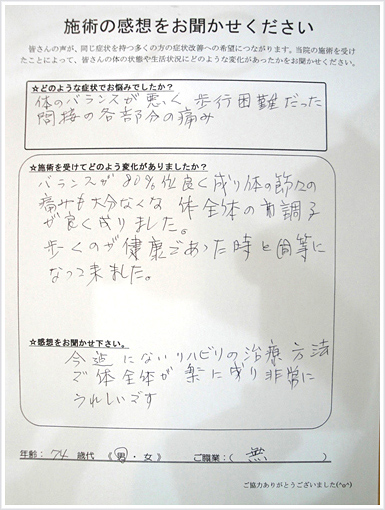 施術の感想をお聞かせください
皆さんの声が、同じ症状を持つ多くの方の症状改善への希望につながります。当院の施術を受け
たことによって、皆さんの体の状態や生活状況にどのような変化があったかをお聞かせください。
☆どのような症状でお悩みでしたか?
体のバランスが悪く 歩行困難だった
間接の各部分の痛み
☆施術を受けてどのよう変化がありましたか?
バランスが80%位良く成り体の節々の
痛みも大分なくな 体全体の調る
が良く成りました。
歩くのが健康であった時と同等に
なって来ました。
☆感想をお聞かせ下さい。
今迄にないリハビリの治療方法
で体全体が楽に成り非常に
うれしいです
年齢: 74 歳代 《 男 ・ 女 》 ご職業:( 無 )
ご協力ありがとうございました(^o^)